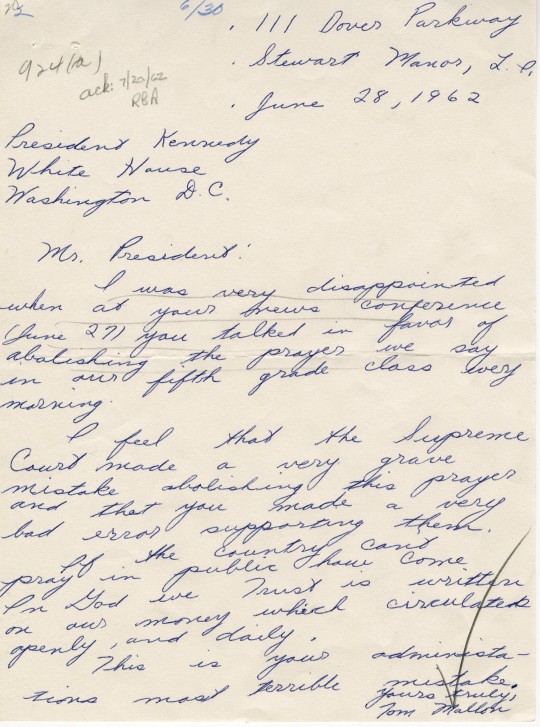 6/30
111 Dover Parkway
Stewart Manor, L.I.
June 28, 1962
924(a)
ack: 7/20/62
RBA
President Kennedy
White House
Washington D.C.
Mr. President:
I was very disappointed
when at your news conference
(June 27) you talked in favor of
abolishing the prayer we say
in our fifth grade class every
morning.
I feel that the Supreme
Court made a very grave
mistake abolishing this prayer
and that you made a very
bad error supporting them.
If the country can't
pray in public how come
In God we Trust is written
on our money which circulates
openly, and daily.
This is your administa-
tions most terrible mistake.
yours truly,
Tom Mallon